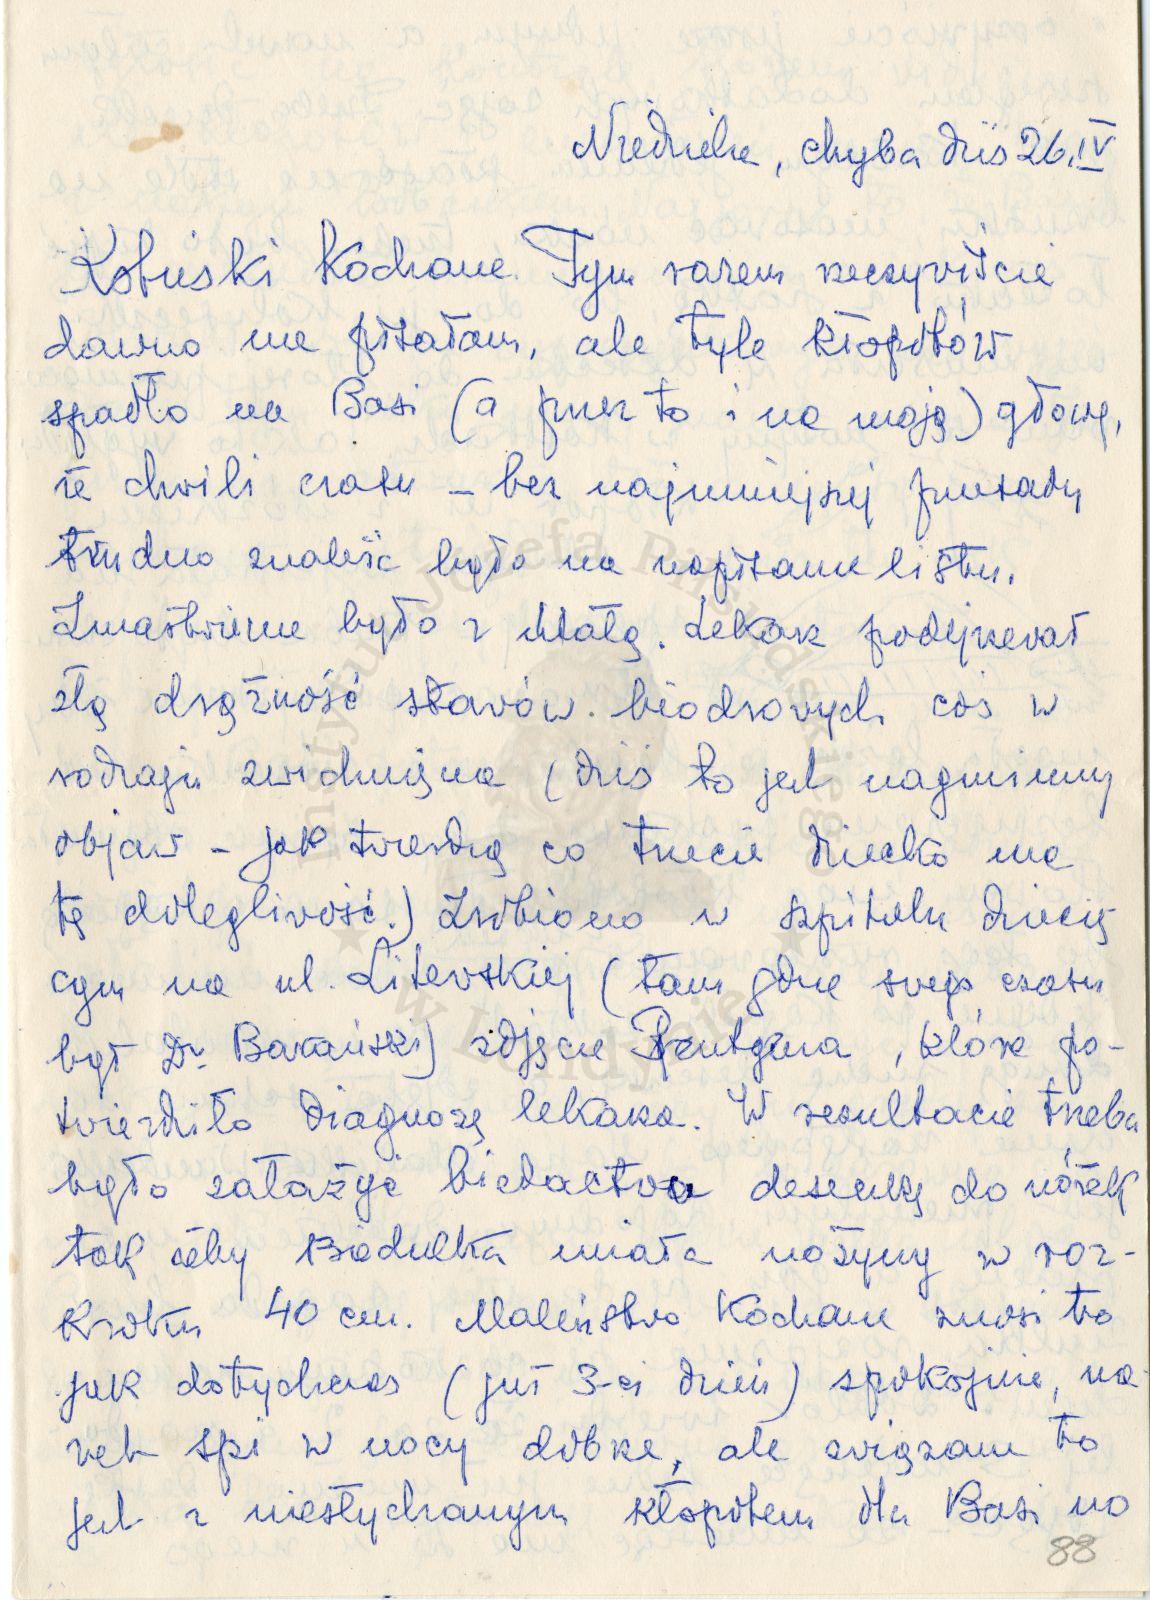 Niedziela, chyba dziś 26.IV
Kobuski Kochane. Tym razem rzeczywiście
dawno nie pisałam, ale tyle kłopotów
spadło na Basi (a przez to i na moją) głowę,
że chwili czasu – bez najmniejszej przesady
trudno znaleźć było na napisanie listu.
Zmartwienie było z Małą. Lekarz podejrzewał
złą drążność stawów biodrowych coś w
rodzaju zwichnięcia (dziś to jest nagminny
objaw – jak twierdzą co trzecie dziecko ma
tę dolegliwość.) Zrobiono w szpitalu dziecię
cym na ul. Litewskiej (tam gdzie swego czasu
był Dr. Barański) zdjęcie Rentgena, które po-
twierdziło diagnozę lekarza. W rezultacie trzeba
było założyć biedactwu deseczkę do nóżek
tak żeby Biedulka miała nożyny w roz-
kroku 40 cm. Maleństwo Kochane znosi to
jak dotychczas (już 3-ci dzień) spokojnie, na-
wet śpi w nocy dobrze, ale związane to
jest z niesłychanym kłopotem dla Basi no
88
Instytut Józefa Piłsudskiego
w Londynie